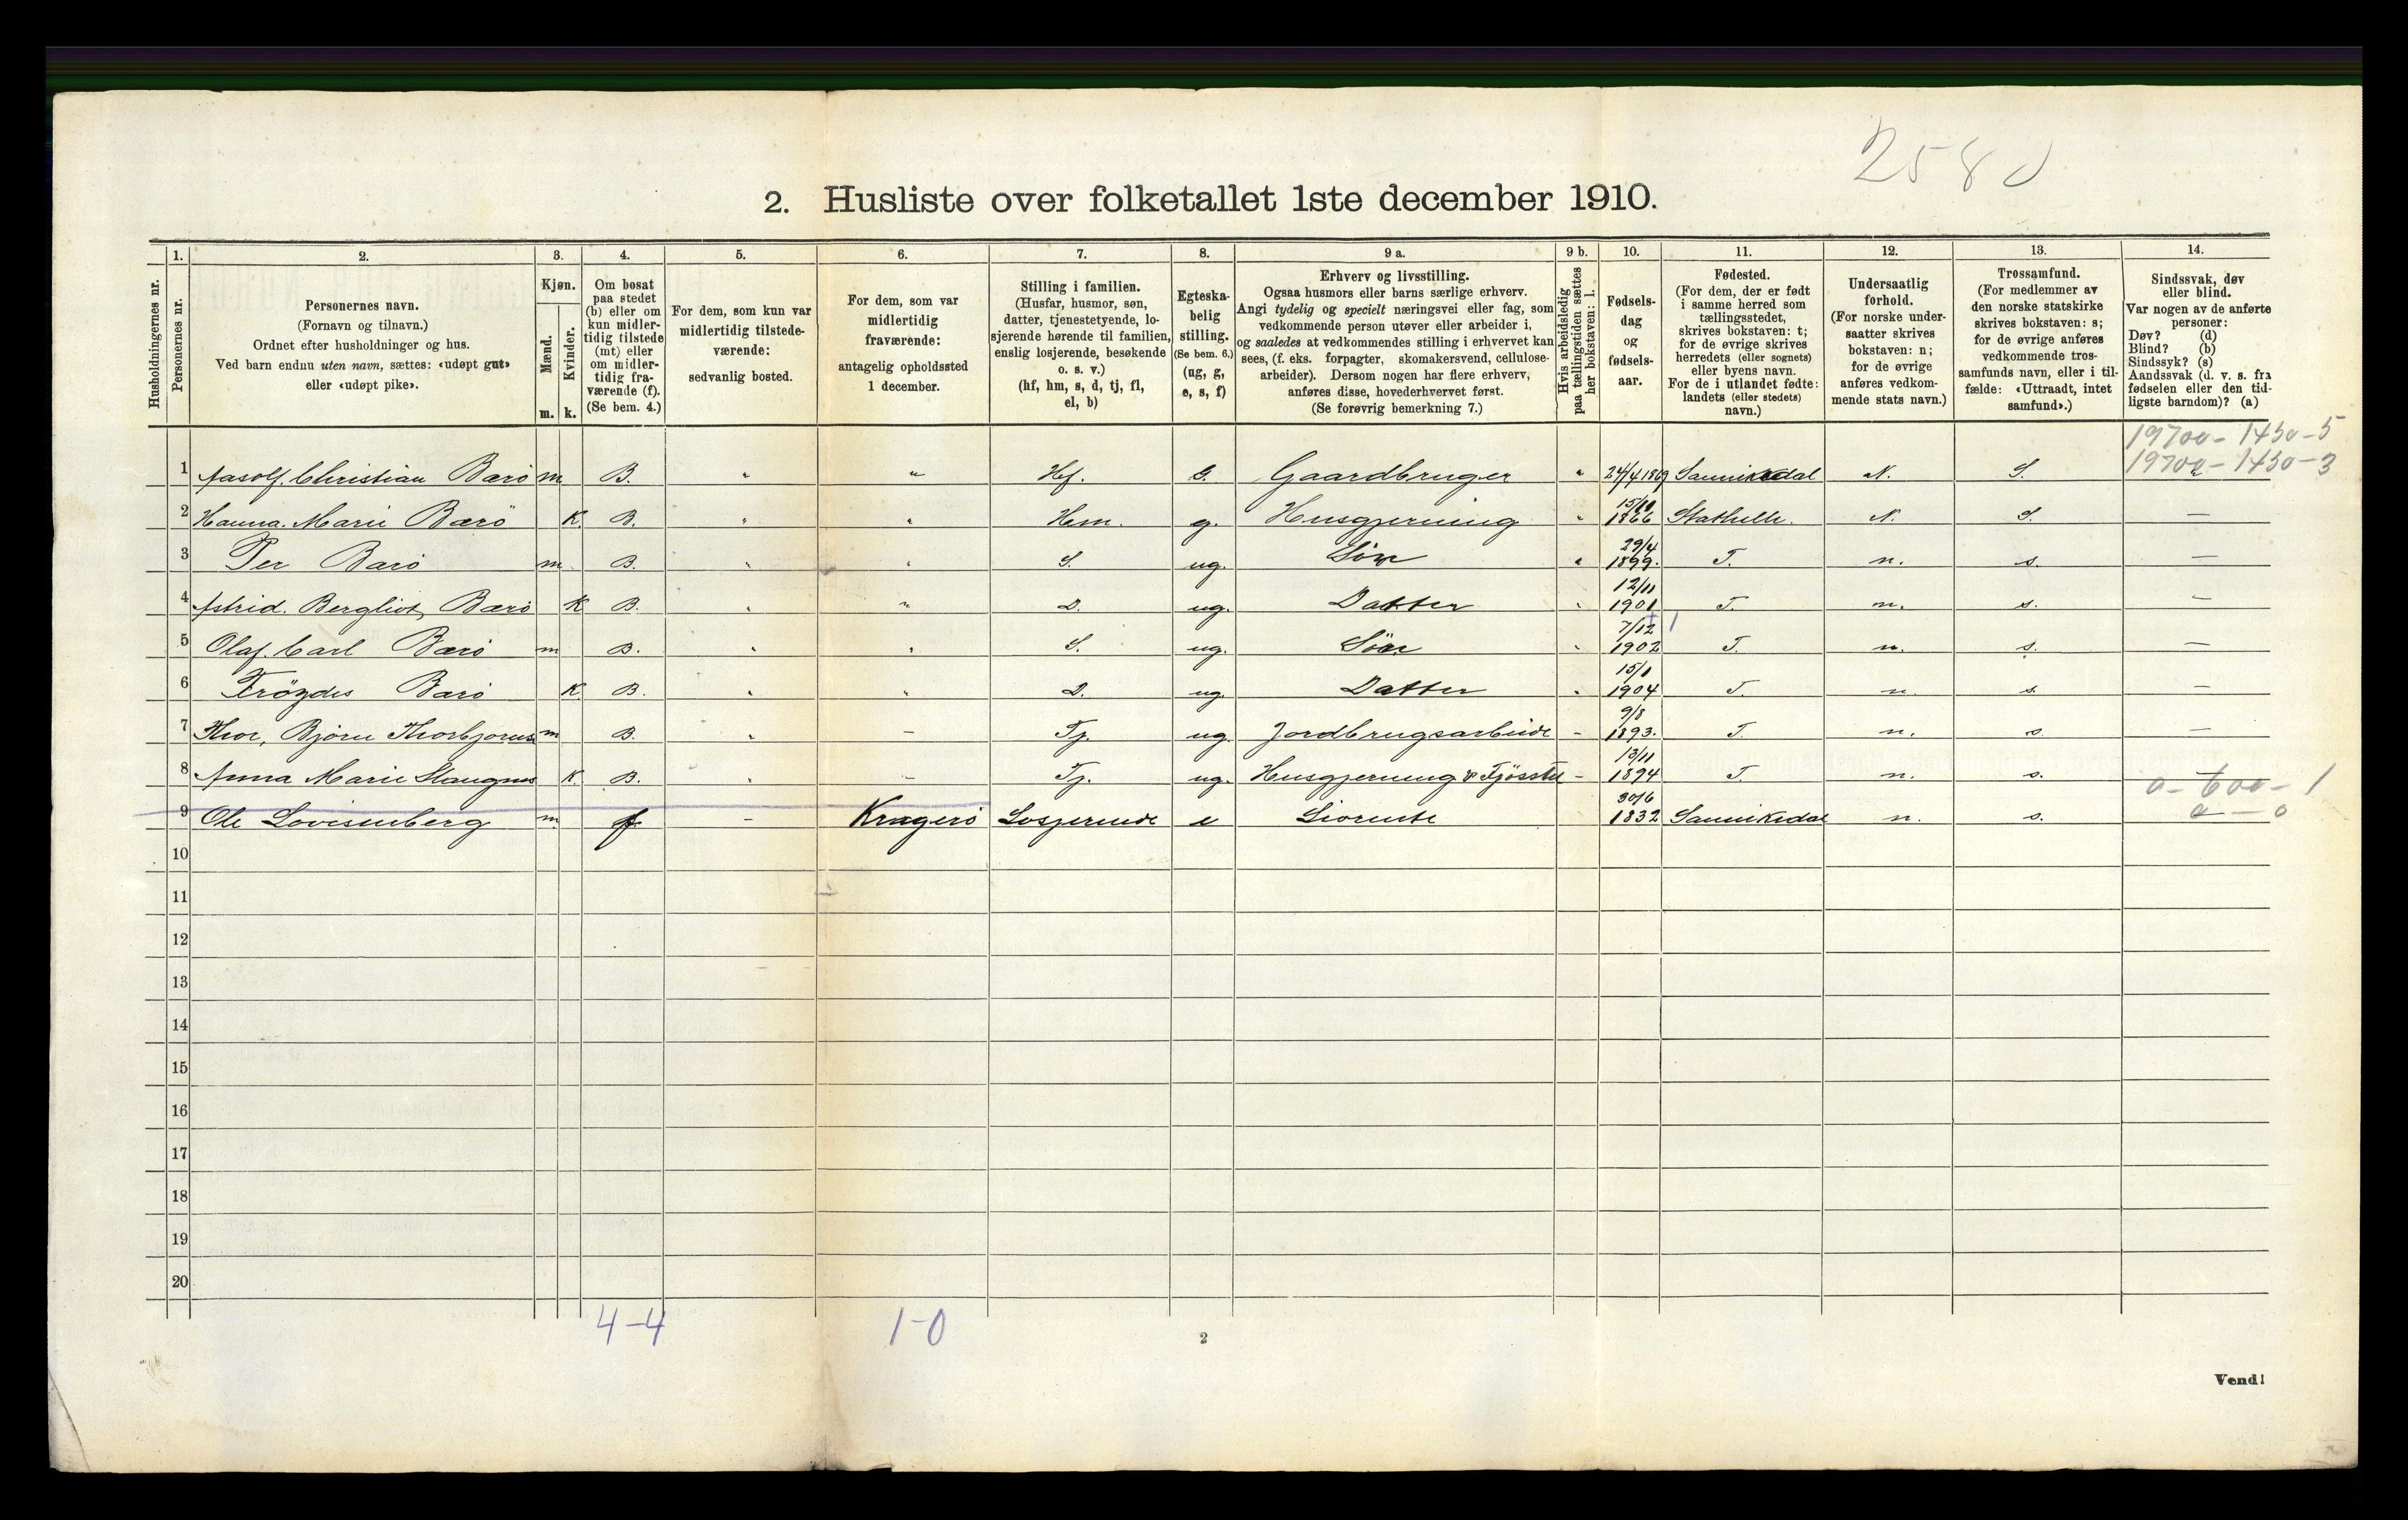 2580
2. Husliste over folketallet 1ste december 1910.
Husholdningernes nr.
1. Personernes nr.
2. Personernes navn.
(Fornavn og tilnavn.)
Ordnet efter husholdninger og hus.
Ved barn endnu uten navn, sættes: «udøpt gut»
eller «udøpt pike».
3. Kjøn.
Mænd. m.
Kvinder. k.
4. Om bosat
paa stedet
(b) eller om
kun midler-
tidig tilstede
(mt) eller
om midler-
tidig fra-
værende (f).
(Se bem. 4.)
5. For dem, som kun var
midlertidig tilstede-
værende:
sedvanlig bosted.
6. For dem, som var
midlertidig
fraværende:
antagelig opholdssted
1 december.
7. Stilling i familien.
(Husfar, husmor, søn,
datter, tjenestetyende, lo-
sjerende hørende til familien,
enslig losjerende, besøkende
o. s. v.)
(hf, hm, s, d, tj, fl,
el, b)
8. Egteska-
belig
stilling.
(Se bem. 6.)
(ug, g,
e, s, f)
9 a. Erhverv og livsstilling.
Ogsaa husmors eller barns særlige erhverv.
Angi tydelig og specielt næringsvei eller fag, som
vedkommende person utøver eller arbeider i,
og saaledes at vedkommendes stilling i erhvervet kan
sees, (f. eks. forpagter, skomakersvend, cellulose-
arbeider). Dersom nogen har flere erhverv,
anføres disse, hovederhvervet først.
(Se forøvrig bemerkning 7.)
9 b. Hvis arbeidsledig
paa tællingstiden sættes
her bokstaven: l.
10. Fødsels-
dag
og
fødsels-
aar.
11. Fødested.
(For dem, der er født
i samme herred som
tællingsstedet,
skrives bokstaven: t;
for de øvrige skrives
herredets (eller sognets)
eller byens navn.
For de i utlandet fødte:
landets (eller stedets)
navn.)
12. Undersaatlig
forhold.
(For norske under-
saatter skrives
bokstaven: n;
for de øvrige
anføres vedkom-
mende stats navn.)
13. Trossamfund.
(For medlemmer av
den norske statskirke
skrives bokstaven: s;
for de øvrige anføres
vedkommende tros-
samfunds navn, eller i til-
fælde: «Uttraadt, intet
samfund».)
14. Sindssvak, døv
eller blind.
Var nogen av de anførte
personer:
Døv? (d)
Blind? (b)
Sindssyk? (s)
Aandssvak (d. v. s. fra
fødselen eller den tid-
ligste barndom)? (a)
19700 - 1430 - 5
19700 - 1430 - 3
1 Christian Barø m B. " " Hf. G. Gaardbruger " 24/4 1869 Sannikedal N. S.
2 Hanna. Marie Barö K B. " " Hm. g. Husgjerning " 1866 Stathelle. N. S. —
3 Per Barø m B. " " S. ug. Sön " 29/4 1899. T. n. s. —
4 Astrid. Bergliot Barø K B. " " D. ug. Datter " 12/11 1901 T. n. s. —
5 Olaf. Carl Barø m B. " " S. ug. Sön " 7/12 1902 T. n. s. —
6 Barø K B. " " D. ug. Datter " 1904 T. n. s. —
7 Thor, Bjørn m B. " – Tj. ug. Jordbrugsarbeide – 9/8 1893. T. n. s. —
8 Anna Marie K. B. " – Tj. ug. Husgjerning & – 13/11 1894 T. n. s. —
0 - 600 - 1
0 — 0
9 Ole Lovisenberg m. f. – Kragerø Losjerende e 30/6 1832 Sannikedal n. s.
10
11
12
13
14
15
16
17
18
19
20
4-4 1-0
2
Vend!